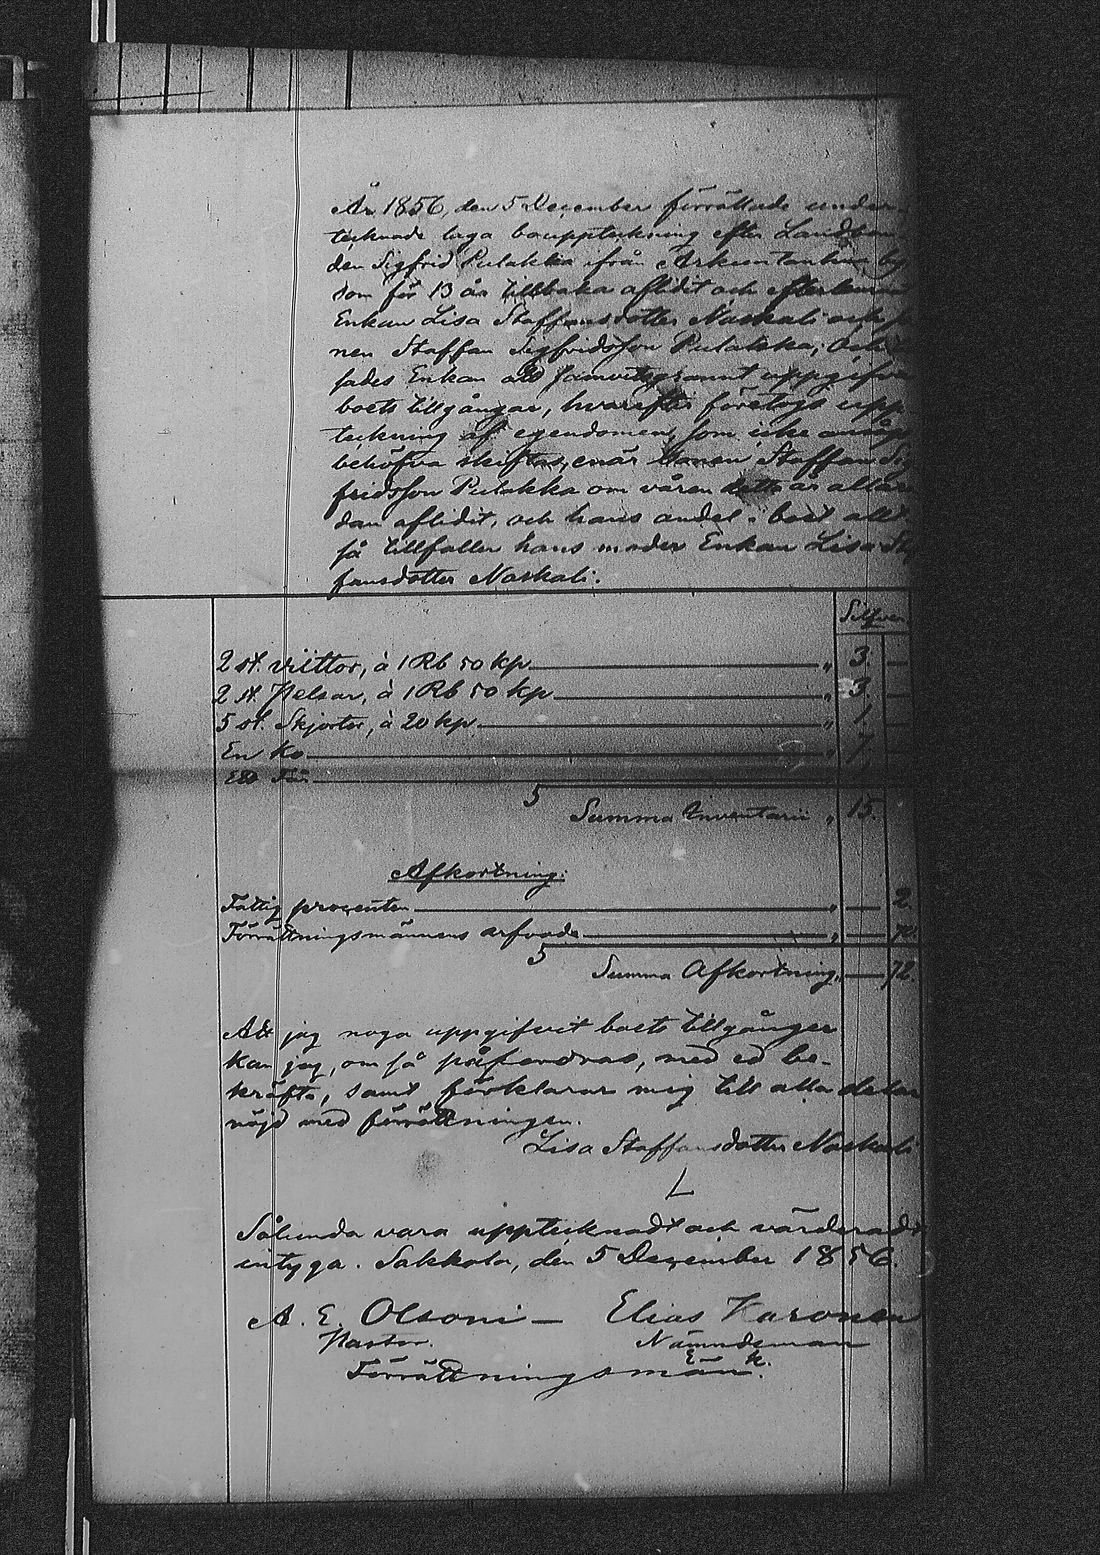 År 1856, den 5 December förrättade under-
tecknade laga bouppteckning efter Landbon
den Sigfrid Pulakka ifrån by
som för 13 år tillbaka aflidit och efterlemnat
Enkan Lisa Staffansdotter Naskali och
nen Staffan Sigfridsson Pulakka;
sades Enkan att samvetsgrannt uppgifva
boets tillgångar, hvarefter företogs upp
teckning af egendomen, som icke
behöfva skiftas, enär sonen Staffan Sig
fridsson Pulakka om våren detta år allare
dan aflidit, och hans andel i boet allt
så tillfaller hans moder Enkan Lisa Staf
fansdotter Naskali.
Silfver
2 st. Viittor, à 1 Rb 50 kp „ 3. —
2 st Pelsar, à 1 Rb 50 kp „ 3. —
5 st. Skjortor, à 20 kp „ 1. —
En ko „ 7. —
Ett Får
S Summa Inventarii „ 15.
Afkortning:
Fattig procenten „ — 2.
Förrättningsmännens arfvode „ — 70.
S Summa Afkortning „ — 72.
Att jag noga uppgifvit boets tillgånger
kan jag, om så påfordras, med ed be-
kräfta, samt förklarar mig till alla delar
nöjd med förrättningen.
Lisa Staffansdotter Naskali
Sålunda vara upptecknadt och värderadt
intyga. Sakkola, den 5 December 1856.
A. E. Olsoni — Elias Karonen
Pastor. Nämndeman
Förrättningsmän.